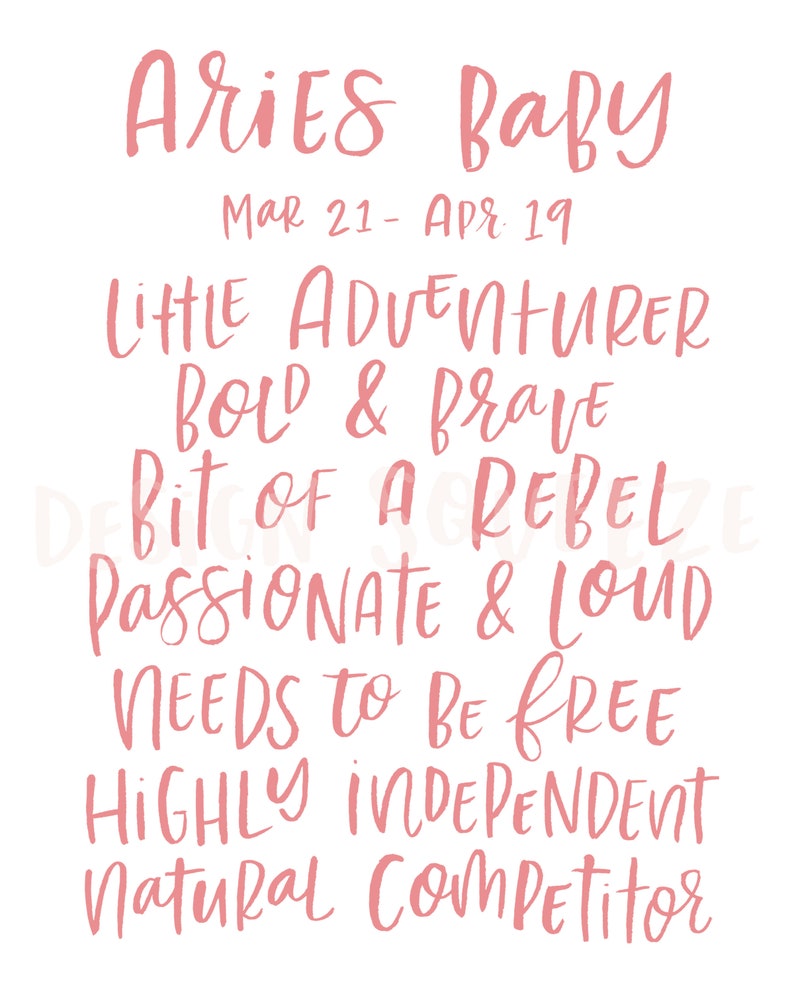 Aries Baby
Mar 21 - Apr. 19
Little Adventurer
Bold & Brave
Bit of a Rebel
DESIGN SQUEEZE
Passionate & Loud
Needs to be free
Highly independent
Natural Competitor